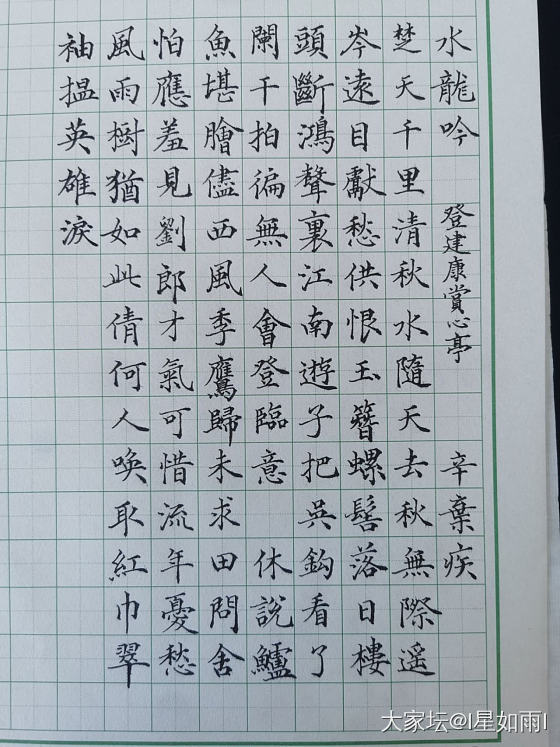 水龍吟 登建康賞心亭 辛棄疾
楚天千里清秋水隨天去秋無際遥
岑遠目獻愁供恨玉簪螺髻落日樓
頭斷鴻聲裏江南遊子把吳鈎看了
闌干拍徧無人會登臨意 休說鱸
魚堪膾儘西風季鷹歸未求田問舍
怕應羞見劉郎才氣可惜流年憂愁
風雨樹猶如此倩何人喚取紅巾翠
袖揾英雄淚
大家坛@l星如雨l